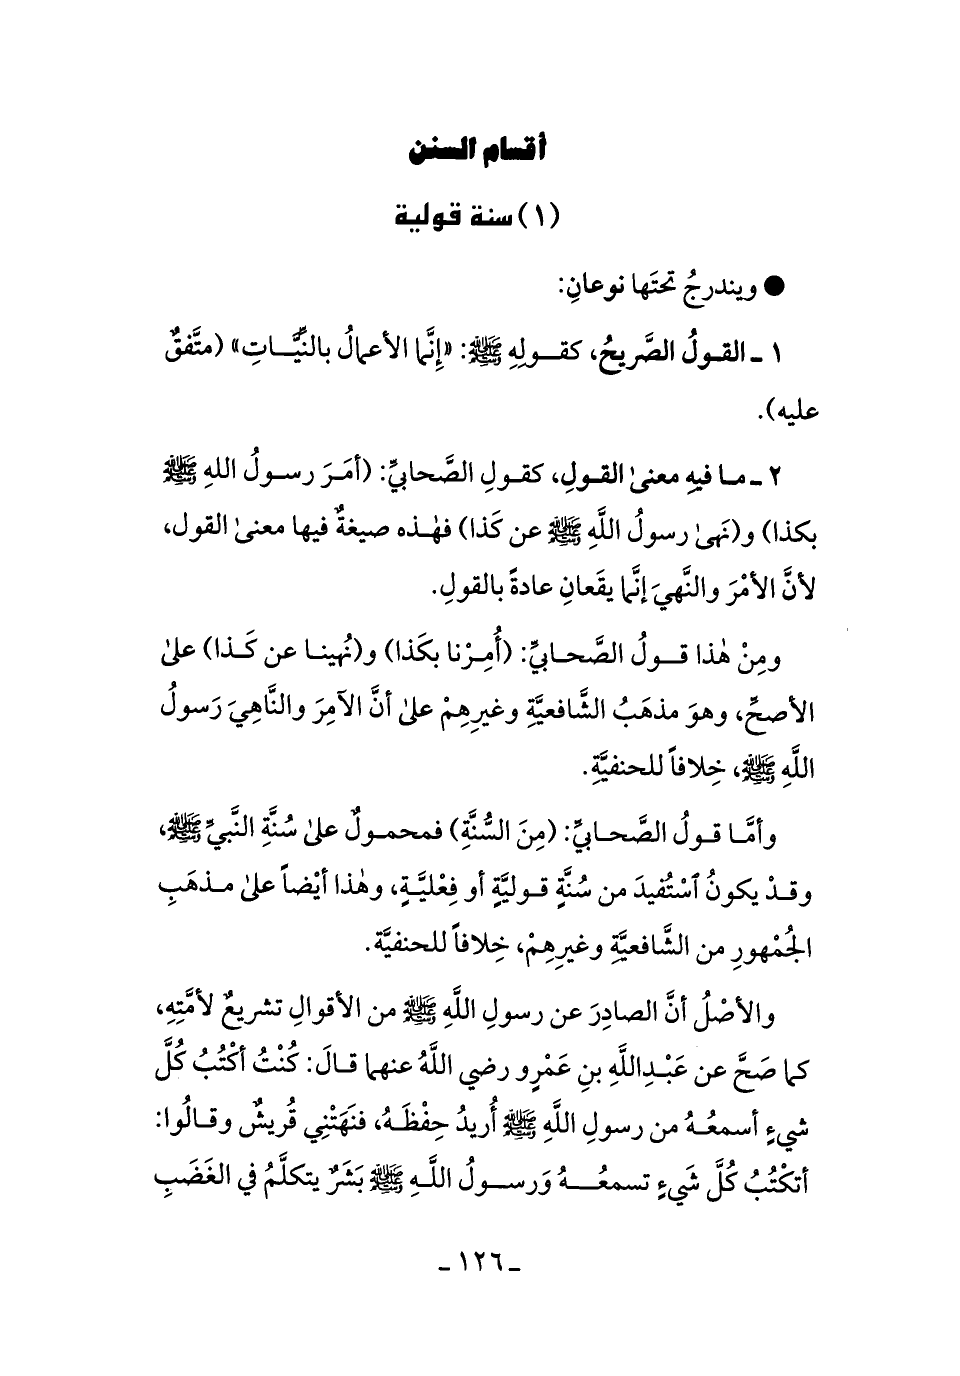 أقسام السنن
(١) سنة قولية
● ويندرجُ تحتَها نوعانِ:
١ ـ القولُ الصَّريحُ، كقولِهِ ﷺ: «إِنَّما الأعمالُ بالنِّيَّاتِ» (متَّفقٌ
عليه).
٢ ـ ما فيهِ معنىٰ القولِ، كقولِ الصَّحابيِّ: (أمَرَ رسولُ اللهِ ﷺ
بكذا) و(نَهىٰ رسولُ اللَّهِ ﷺ عن كَذا) فهٰذه صيغةٌ فيها معنىٰ القول،
لأنَّ الأمْرَ والنَّهيَ إنَّما يقَعانِ عادةً بالقولِ.
ومِنْ هٰذا قولُ الصَّحابيِّ: (أُمِرْنا بكَذا) و(نُهينا عن كَذا) علىٰ
الأصحِّ، وهوَ مذهَبُ الشَّافعيَّةِ وغيرِهِمْ علىٰ أنَّ الآمِرَ والنَّاهِيَ رَسولُ
اللَّهِ ﷺ، خِلافاً للحنفيَّةِ.
وأمَّا قولُ الصَّحابيِّ: (مِنَ السُّنَّةِ) فمحمولٌ علىٰ سُنَّةِ النَّبيِّ ﷺ،
وقدْ يكونُ ٱسْتُفيدَ من سُنَّةٍ قوليَّةٍ أو فِعْليَّةٍ، وهٰذا أيْضاً علىٰ مذهَبِ
الجُمْهورِ من الشَّافعيَّةِ وغيرِهِمْ، خِلافاً للحنفيَّة.
والأصْلُ أنَّ الصادِرَ عن رسولِ اللَّهِ ﷺ من الأقوالِ تشريعٌ لأمَّتِهِ،
كما صَحَّ عن عَبْدِاللَّهِ بنِ عَمْرٍو رضي اللَّهُ عنهما قالَ: كُنْتُ أكْتُبُ كُلَّ
شيءٍ أسمعُهُ من رسولِ اللَّهِ ﷺ أُريدُ حِفْظَهُ، فنَهَتْنِي قُريشٌ وقالُوا:
أتكْتُبُ كُلَّ شَيءٍ تسمعُهُ وَرسولُ اللَّهِ ﷺ بَشَرٌ يتكلَّمُ في الغَضَبِ
ـ ١٢٦ ـ